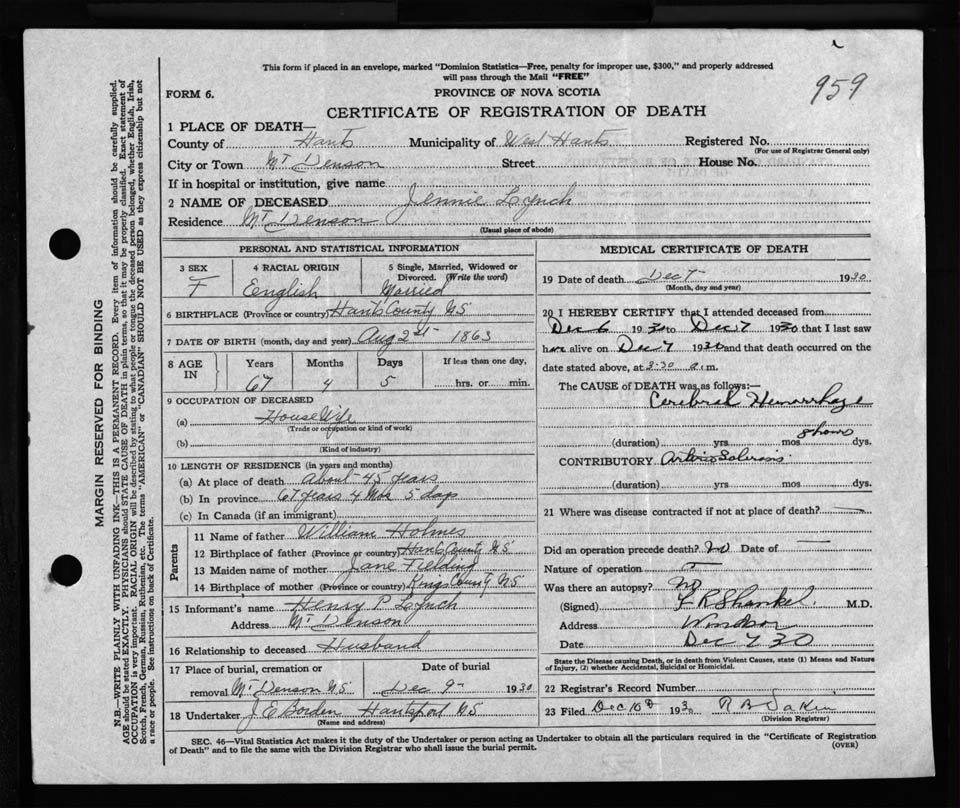 This form if placed in an envelope, marked "Dominion Statistics—Free, penalty for improper use, $300," and properly addressed
will pass through the Mail "FREE"
959
FORM 6.
PROVINCE OF NOVA SCOTIA
CERTIFICATE OF REGISTRATION OF DEATH
1 PLACE OF DEATH—
County of Hants Municipality of West Hants Registered No.
(For use of Registrar General only)
City or Town Mt Denson Street House No.
If in hospital or institution, give name
2 NAME OF DECEASED Jennie Lynch
Residence Mt Denson
(Usual place of abode)
PERSONAL AND STATISTICAL INFORMATION
3 SEX 4 RACIAL ORIGIN 5 Single, Married, Widowed or
Divorced. (Write the word)
F English Married
6 BIRTHPLACE (Province or country) Hants County NS
7 DATE OF BIRTH (month, day and year) Aug 2nd 1863
8 AGE IN Years Months Days If less than one day,
67 4 5 hrs. or min.
9 OCCUPATION OF DECEASED
(a) House Wife
(Trade or occupation or kind of work)
(b)
(Kind of industry)
10 LENGTH OF RESIDENCE (in years and months)
(a) At place of death about 45 years
(b) In province 67 years 4 Mos 5 days
(c) In Canada (if an immigrant)
Parents
11 Name of father William Holmes
12 Birthplace of father (Province or country) Hants County NS
13 Maiden name of mother Jane Fielding
14 Birthplace of mother (Province or country) Kings County NS
15 Informant's name Henry P Lynch
Address Mt Denson
16 Relationship to deceased Husband
17 Place of burial, cremation or Date of burial
removal Mt Denson NS Dec 9 1930
18 Undertaker J E Borden Hantsport NS
(Name and address)
MEDICAL CERTIFICATE OF DEATH
19 Date of death Dec 7 1930
(Month, day and year)
20 I HEREBY CERTIFY that I attended deceased from
Dec 6 1930 to Dec 7 1930 that I last saw
her alive on Dec 7 1930 and that death occurred on the
date stated above, at 3:30 a.m.
The CAUSE of DEATH was as follows:—
Cerebral Hemorrhage
8 hours
(duration) yrs mos dys.
CONTRIBUTORY
(duration) yrs. mos. dys.
21 Where was disease contracted if not at place of death?
Did an operation precede death? no Date of —
Nature of operation —
Was there an autopsy? no
(Signed) Shankel M.D.
Address Windsor
Date Dec 7 30
State the Disease causing Death, or in death from Violent Causes, state (1) Means and Nature
of Injury, (2) whether Accidental, Suicidal or Homicidal.
22 Registrar's Record Number
23 Filed Dec 10 1930 R B
(Division Registrar)
SEC. 46—Vital Statistics Act makes it the duty of the Undertaker or person acting as Undertaker to obtain all the particulars required in the "Certificate of Registration
of Death" and to file the same with the Division Registrar who shall issue the burial permit.
(OVER)
MARGIN RESERVED FOR BINDING
N.B.—WRITE PLAINLY WITH UNFADING INK—THIS IS A PERMANENT RECORD. Every item of information should be carefully supplied.
AGE should be stated EXACTLY. PHYSICIANS should STATE CAUSE OF DEATH in plain terms, so that it may be properly classified. Exact statement of
OCCUPATION is very important. RACIAL ORIGIN will be described by stating to what people or tongue the deceased person belonged, whether English, Irish,
Scotch, French, German, Russian, Ruthenian, etc. The terms "AMERICAN" or "CANADIAN" SHOULD NOT BE USED as they express citizenship but not
a race or people. See instructions on back of Certificate.